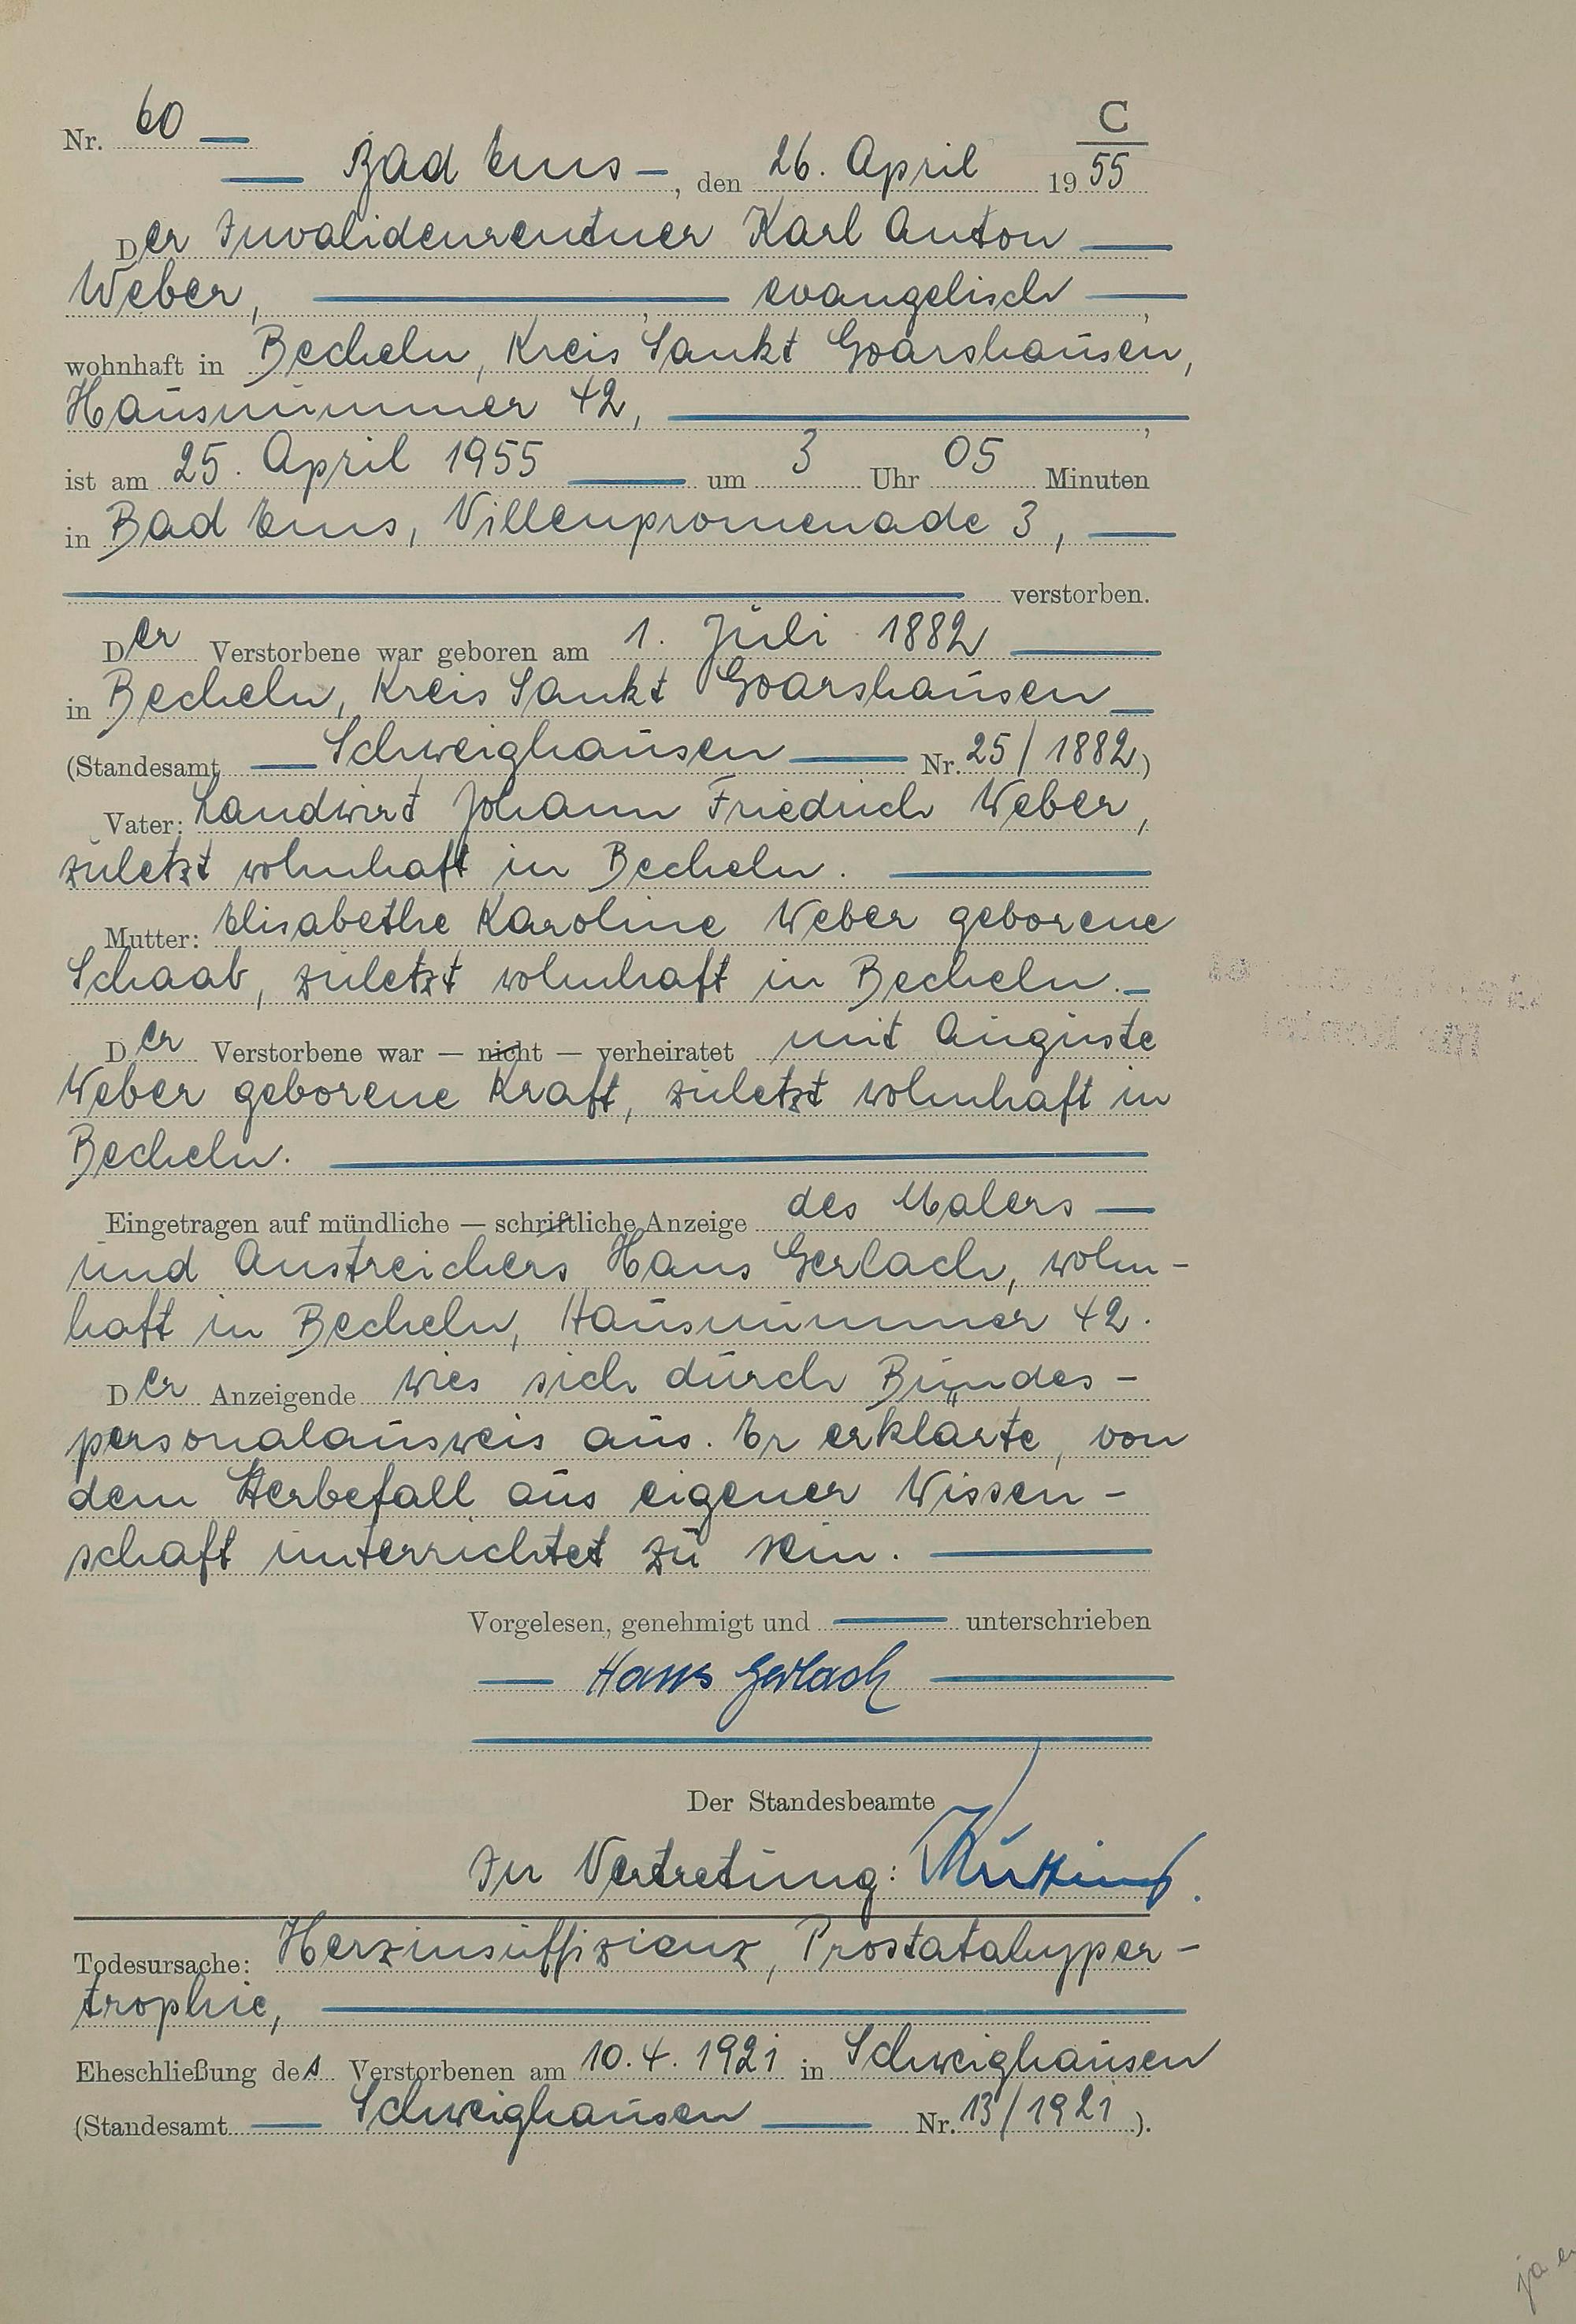 C
Nr. 60
Bad Ems, den 26. April 1955
Der Invalidenrentner Karl Anton
Weber, evangelisch,
wohnhaft in Becheln, Kreis Sankt Goarshausen,
Hausnummer 42,
ist am 25. April 1955 um 3 Uhr 05 Minuten
in Bad Ems, Villenpromenade 3,
verstorben.
Der Verstorbene war geboren am 1. Juli 1882
in Becheln, Kreis Sankt Goarshausen
(Standesamt Schweighausen Nr. 25/1882)
Vater: Landwirt Johann Friedrich Weber,
zuletzt wohnhaft in Becheln.
Mutter: Elisabethe Karoline Weber geborene
Schaab, zuletzt wohnhaft in Becheln.
Der Verstorbene war — nicht — verheiratet mit Auguste
Weber geborene Kraft, zuletzt wohnhaft in
Becheln.
Eingetragen auf mündliche — schriftliche Anzeige des Malers
und Anstreichers Hans Gerlach, wohn-
haft in Becheln, Hausnummer 42.
Der Anzeigende wies sich durch Bundes-
personalausweis aus. Er erklärte, von
dem Sterbefall aus eigener Wissen-
schaft unterrichtet zu sein.
Vorgelesen, genehmigt und unterschrieben
Hans Gerlach
Der Standesbeamte
In Vertretung:
Todesursache: Herzinsuffizienz, Prostatahyper-
trophie,
Eheschließung des Verstorbenen am 10.4.1921 in Schweighausen
(Standesamt Schweighausen Nr. 13/1921).